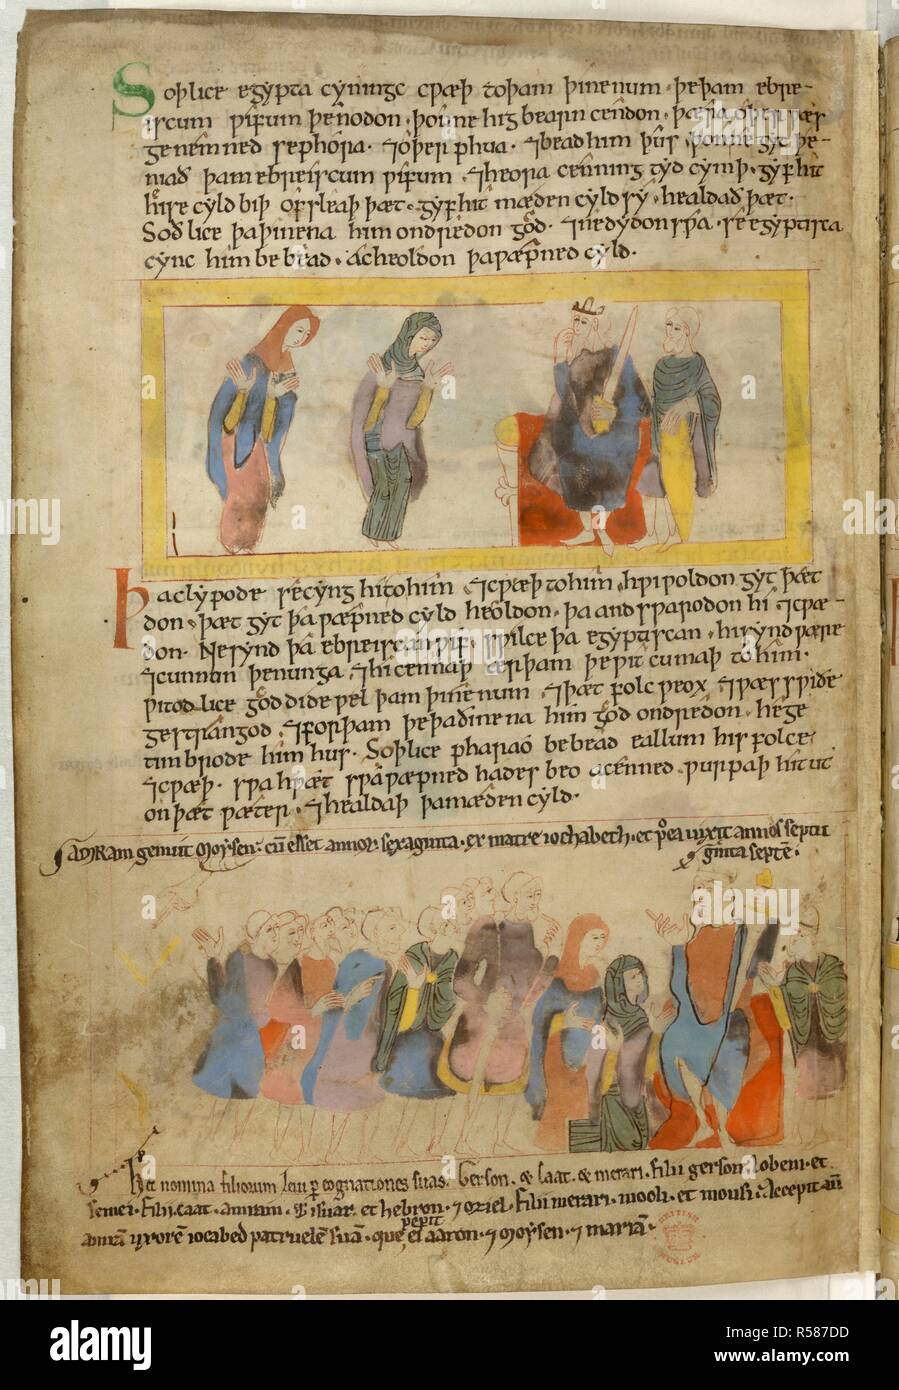 Soþlice egypta cyningc cƿæþ to þam þinenum · þe þam ebre-
iscum ƿifum þenodon · þonne hig bearn cendon · þæra oþer ƿæs
genemned sephora · ⁊ oþer phua · ⁊ bead him þus · þonne gyt þe-
niað þam ebreiscum ƿifum · ⁊ heora cenning tyd cymþ · gyf hit
hyse cyld biþ ofsleaþ þæt · gyf hit mæden cyld sy · healdað þæt ·
Soðlice þa þinena him ondredon god · ⁊ ne dydon sƿa · se egyptisca
cync him bebead · ac heoldon þa ƿæpned cyld ·
Þa clypode se cyng hi to him · ⁊ cƿæþ to him · hƿi ƿoldon gyt þæt
don · þæt gyt þa ƿæpned cyld heoldon · þa andsƿarodon hi ⁊ cƿæ-
don · Ne synd þa ebreiscan ƿif · sƿilce þa egyptiscan · hi synd ƿære
⁊ cunnun þenunga · ⁊ hi cennaþ ær þam þe ƿit cumaþ to him ·
ƿitodlice god dide ƿel þam þinenum · ⁊ þæt folc ƿeox · ⁊ ƿæs sƿiðe
gestrangod · ⁊ forþam þe þa þinena him god ondredon · he ge
timbrode him hus · Soþlice pharao bebead eallum his folce
⁊ cƿæþ · sƿa hƿæt sƿa ƿæpned hades beo acenned · ƿurpaþ hit ut
on þæt ƿæter · ⁊ healdaþ þa mæden cyld ·
AMRam genuit Moysen · cum esset annor sexaginta · ex matre iochabeth · et p ea uixit annos septu
ginta septem ·
Hec nomina filiorum leui p cognationes suas · Gerson · & Caat · & merari · filii gerson · lobeni · et
semei · filii caat · amram · & isuar · et hebron · ⁊ oziel · filii merari · mooli · et mousi · Accepit aut
amram uxorem iocabed patruelem suam · que peperit ei aaron · ⁊ Moysen · ⁊ mariam ·
BRITISH
MUSEUM
alamy
alamy
alamy
Image ID: R587DD
www.alamy.com